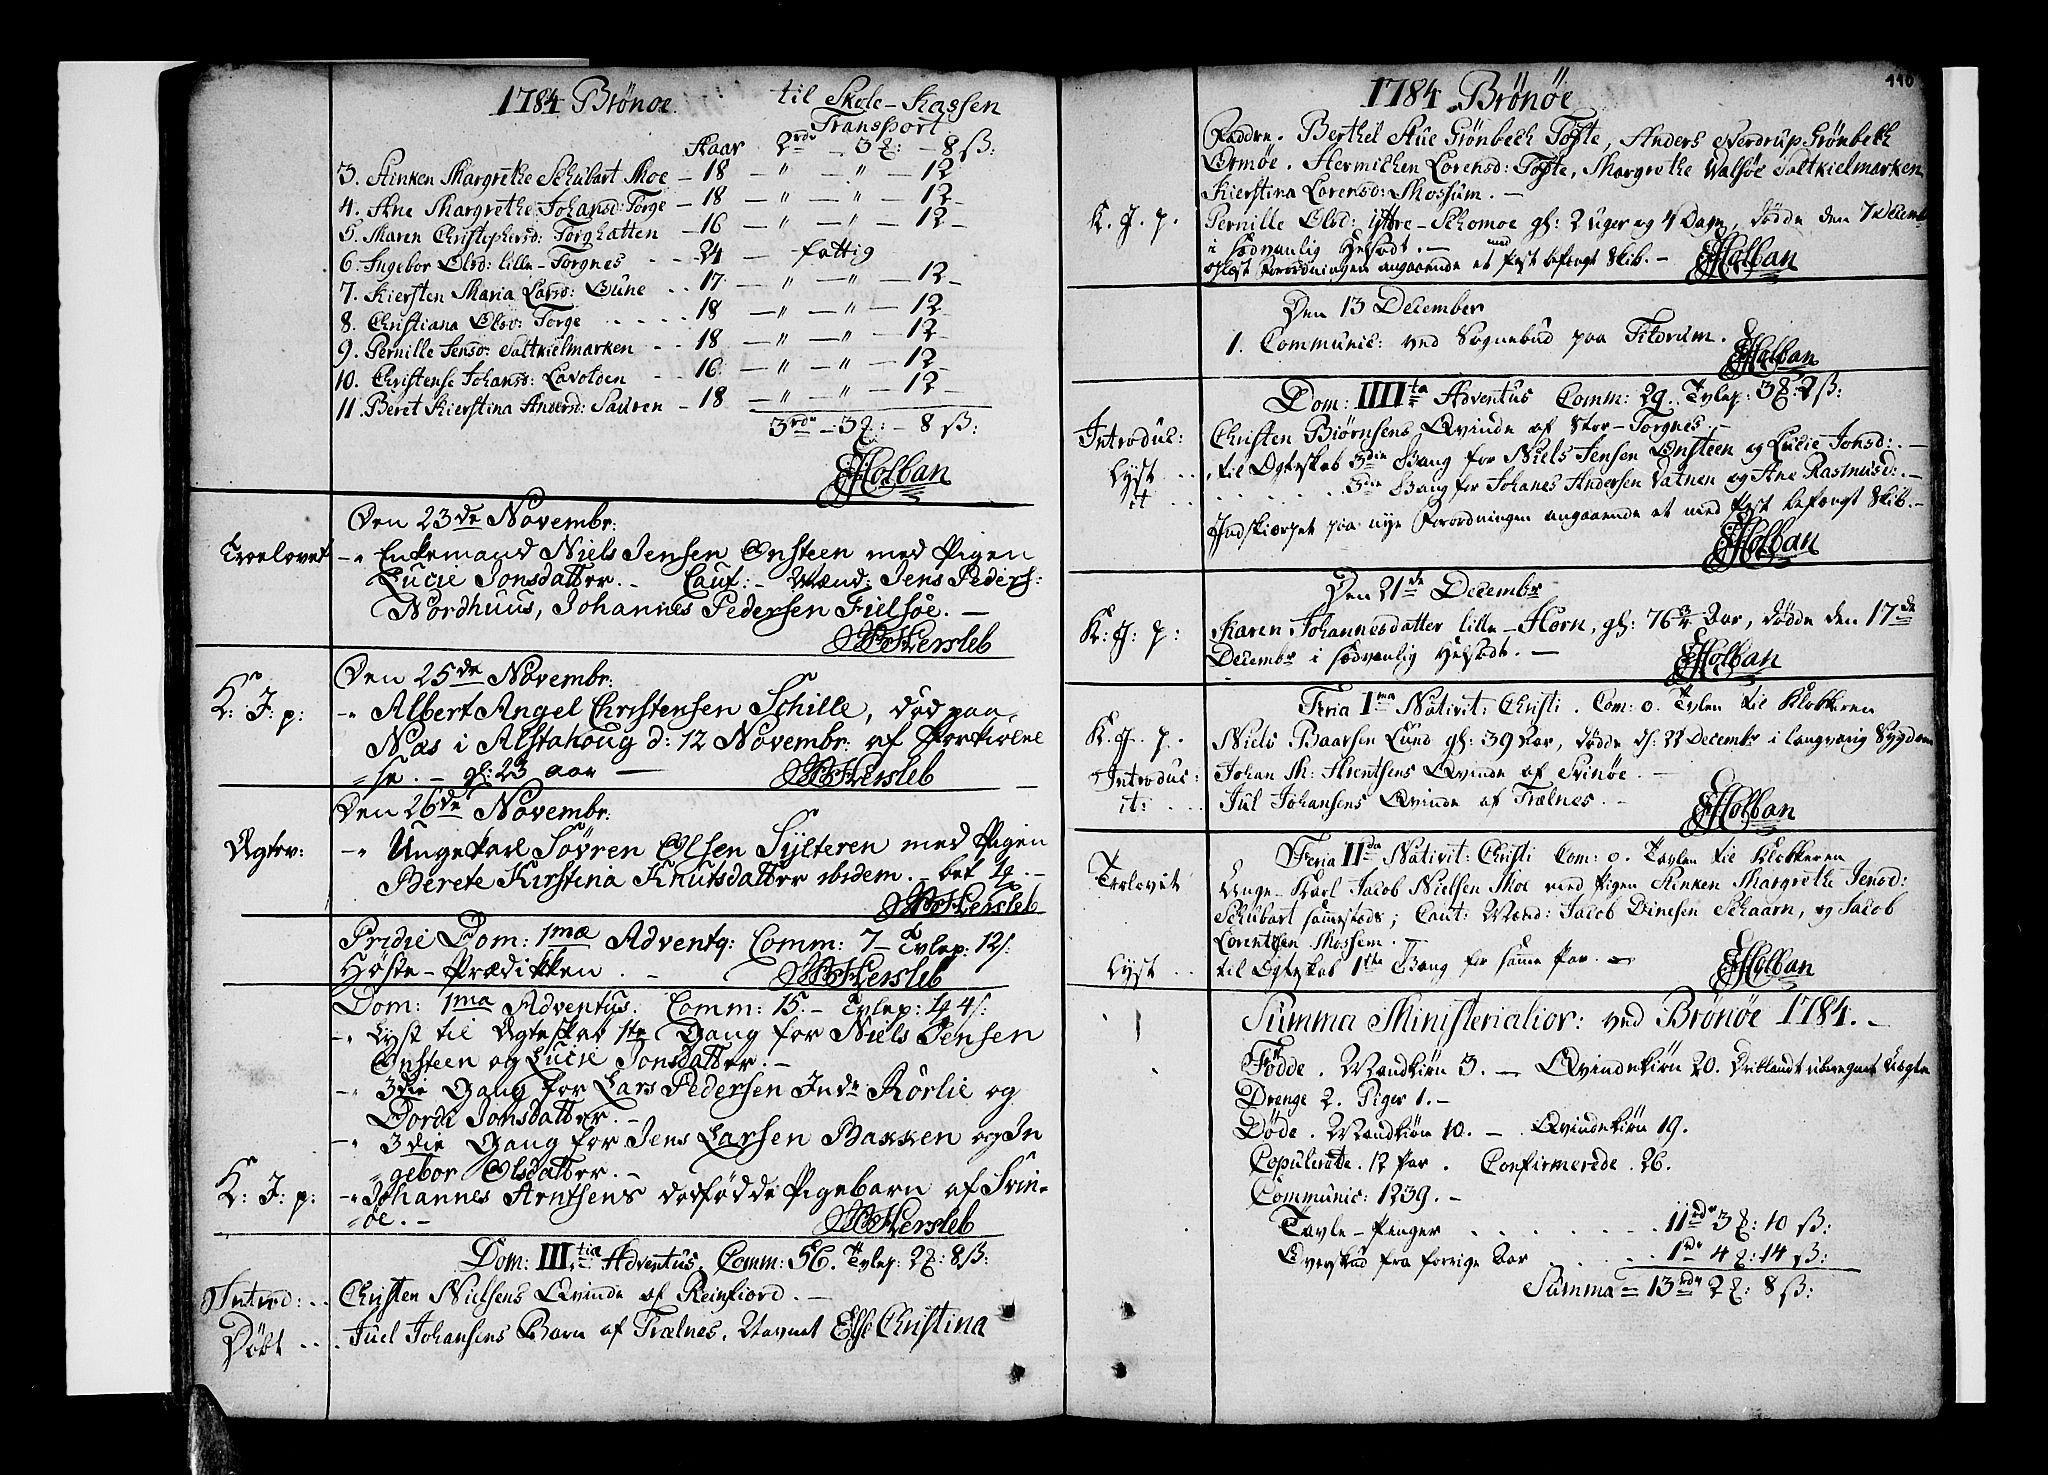 1784 Brönoe. til Skole-Kassen
Transport
Aar 2rdr - 3 - 8 ß:
3. Anken Margrethe Schubart Moe - 18 - " - " - 12
4. Ane Margrethe Johansd: Torge - 18 - " - " - 12
5. Maren Christophersd: Torghatten - 16 - " - " - 12
6. Ingebor Olsd: lille-Torgnes - 24 - fattig
7. Kiersten Maria Larsd: Bune - 17 - " - " - 12
8. Christiana Olsd: Torge - 18 - " - " - 12
9. Pernille Jensd: Saltkielmarken - 18 - " - " - 12
10. Christense Johansd: Lavolden - 16 - " - " - 12
11. Beret Kierstina Andersd: Sauren - 18 - " - " - 12
3rdr - 3 - 8 ß:
Holban
Den 23de Novembr:
Troelovet -" Enkemand Niels Jensen Onsteen med Pigen
Lucie Jonsdatter. - Caut: - Mænd: Jens Peders:
Nordhuus, Johannes Pedersen Fielsöe. -
Hersleb
Den 25de Novembr:
K: J: p: -" Albert Angel Christensen Schille, död paa
Næs i Alstahoug d: 12 Novembr: af
se. - gl: 23 aar - Hersleb
Den 26de Novembr:
Ægtev: -" Ungekarl Søvren Olsen Sylteren med Pigen
Berete Kirstina Knutsdatter ibidem. - bet 1
Hersleb
Pridie Dom: 1mæ Adventq: Comm: 7 - Tvlep: 12
Höste-Prædikken. - Hersleb
Dom: 1ma Adventus. Comm: 15. - Tvlep: 4
-" Lyst til Ægteskab 1ste Gang for Niels Jensen
Onsteen og Lucie Jonsdatter. -
-" 3die Gang for Lars Pedersen Indr Rörlie og
Dordi Jonsdatter. -
-" 3die Gang for Jens Larsen Bakken og In
gebor Olsdatter. -
K: J: p: -" Johannes Arntsens dødfødde Pigebarn af Svin=
=öe. - Hersleb
Dom: III tia Adventus. Comm: 56. Tvlep: 2: 8 ß:
Introd: Christen Nielsens Qvinde af Reinfiord. -
Døbt Juel Johansens Barn af Trælnes, Navnet Else Christina
110
1784 Brönöe
Faddre. Berthel Aue Grönbech Tofte, Anders Nordrup Grönbech
Ormöe. Hermichen Lorensd: Tofte, Margrethe Walsöe Saltkielmarken
Kierstina Lorensd: Mossum. -
K. J. p. Pernille Olsd: ytre-Schomoe gl: 2 Uger og 4 Dage, dödde den 7 Decembr
i sædvanlig Helsodt. -
oplæst Forordningen angaaende et med Pest befengt Skib. - Holban
Den 13 December
1. Communic: ved Sognebud paa Tilrum. Holban
Dom: IIII ta Adventus Comm: 29. Tvlep: 3: 2 ß:
Introduc: Christen Biörnsens Qvinde af Stor-Torgnes. -
Lyst til Ægteskab 3die Gang for Niels Jensen Onsteen og Lucie Jonsd: -
it 3die Gang for Johanes Andersen Vatnen og Ane Rasmusd: -
Indskiærpet paa nye Forordningen angaaende et med Pest befengt Skib. -
Holban
Den 21de Decembr
K: J: p: Karen Johannesdatter lille-Horn, gl: 76 3/4 Aar, dödde den 17de
Decembr i sædvanlig Helsodt. - Holban
Feria Ima Nativit: Christi. Com: 0. Tvlen til Klokkeren
K. J. p. Niels Baarsen Lund gl: 39 Aar, dödde d: 22 Decembr i langvarig Sygdom
Introduc: Johan M: Arentsens Qvinde af Svinöe. -
it: Jul Johansens Qvinde af Trælnes. - Holban
Feria IIda Nativit: Christi Com: 0. Tavlen til Klokkeren
Trolovet Unge-Karl Jacob Nielsen Moe med Pigen Anken Margrethe Jensd:
Schubart sammesteds; Caut: Mænd: Jacob Dinesen Schaarn, og Jacob
Lorentsen Mossem. -
Lyst til Ægteskab 1ste Gang for samme Par. - Holban
Summa Ministerialior: ved Brönöe 1784. -
Födde. Mandkiön 3. - Qvindekiön 20. Deriblandt uberegnet Uægte
Drenge 2. Piger 1. -
Døde. Mandkiön 10. - Qvindekiön 19.
Copulerede. 12 Par. Confirmerede. 26.
Communic: 1239. -
Tavle-Penger 11rdr 3: 10 ß:
Overskud fra forrige Aar 1rdr 4: 14 ß:
Summa = 13rdr 2: 8 ß: